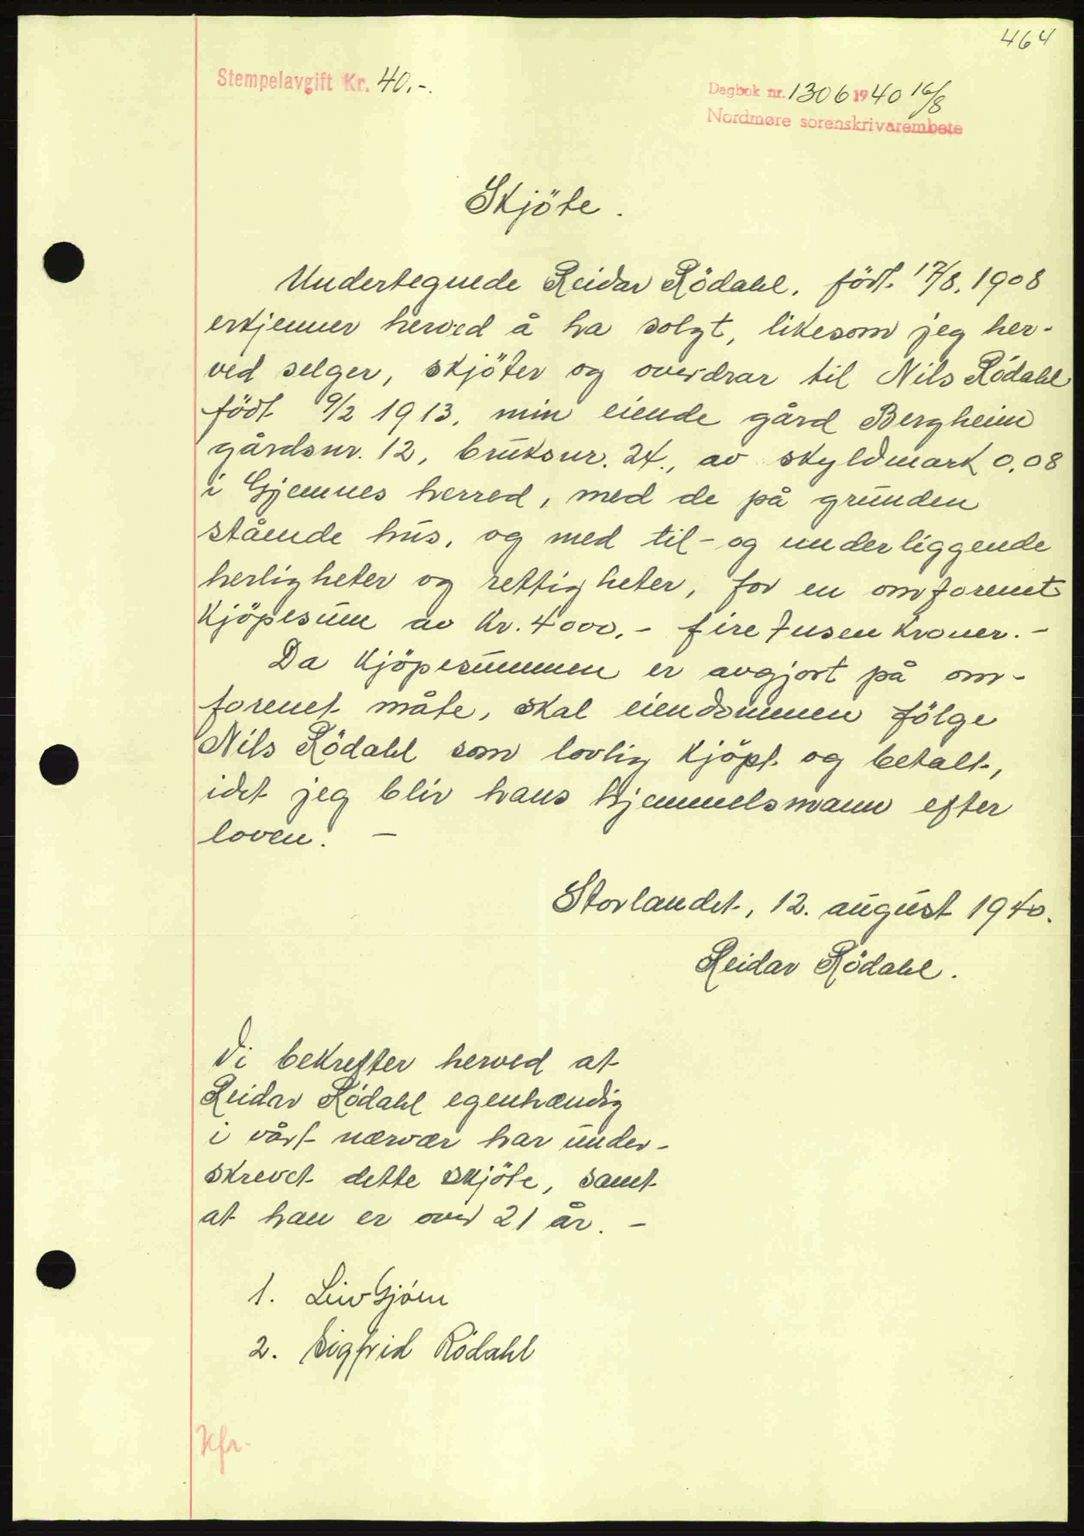 464
Stempelavgift Kr. 40.-.
Dagbok nr. 1306 1940 16/8
Nordmøre sorenskrivarembete
Skjöte.
Undertegnede Reidar Rödahl, födt 17/8. 1908
erkjenner herved å ha solgt, likesom jeg her-
ved selger, skjöter og overdrar til Nils Rödahl
födt 9/2 1913, min eiende gård Bergheim
gårdsnr. 12, bruksnr. 24., av skyldmark 0,08
i Gjemnes herred, med de på grunden
stående hus, og med til- og underliggende
herligheter og rettigheter, for en omforenet
Kjöpesum av Kr. 4000,- fire tusen Kroner. -
Da Kjöpesummen er avgjort på om-
forenet måte, skal eiendommen fölge
Nils Rödahl som lovlig Kjöpt og betalt,
idet jeg bliv hans hjemmelsmann efter
loven. -
Storlandet, 12. august 1940.
Reidar Rödahl.
Vi bekrefter herved at
Reidar Rödahl egenhændig
i vårt nærvær har under-
skrevet dette skjöte, samt
at han er over 21 år. -
1. Leiv Gjöen
2. Sigfrid Rödahl
Kfr.